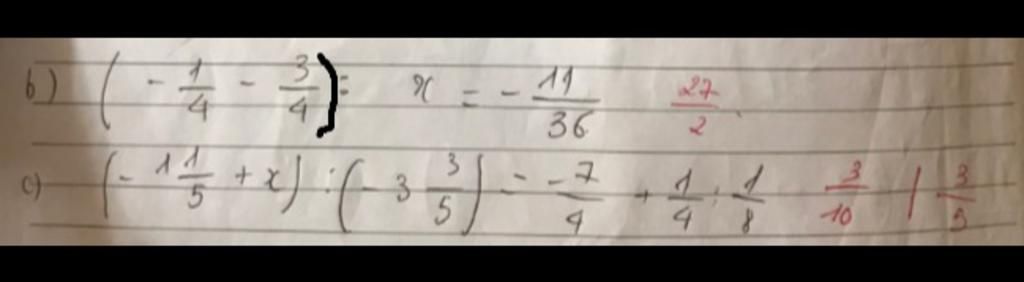 b) (- 1/4 - 3/4) : x = - 11/36 27/2
c) (- 1 1/5 + x) : (- 3 3/5) = - 7/4 + 1/4 : 1/8 3/10 | 3/5